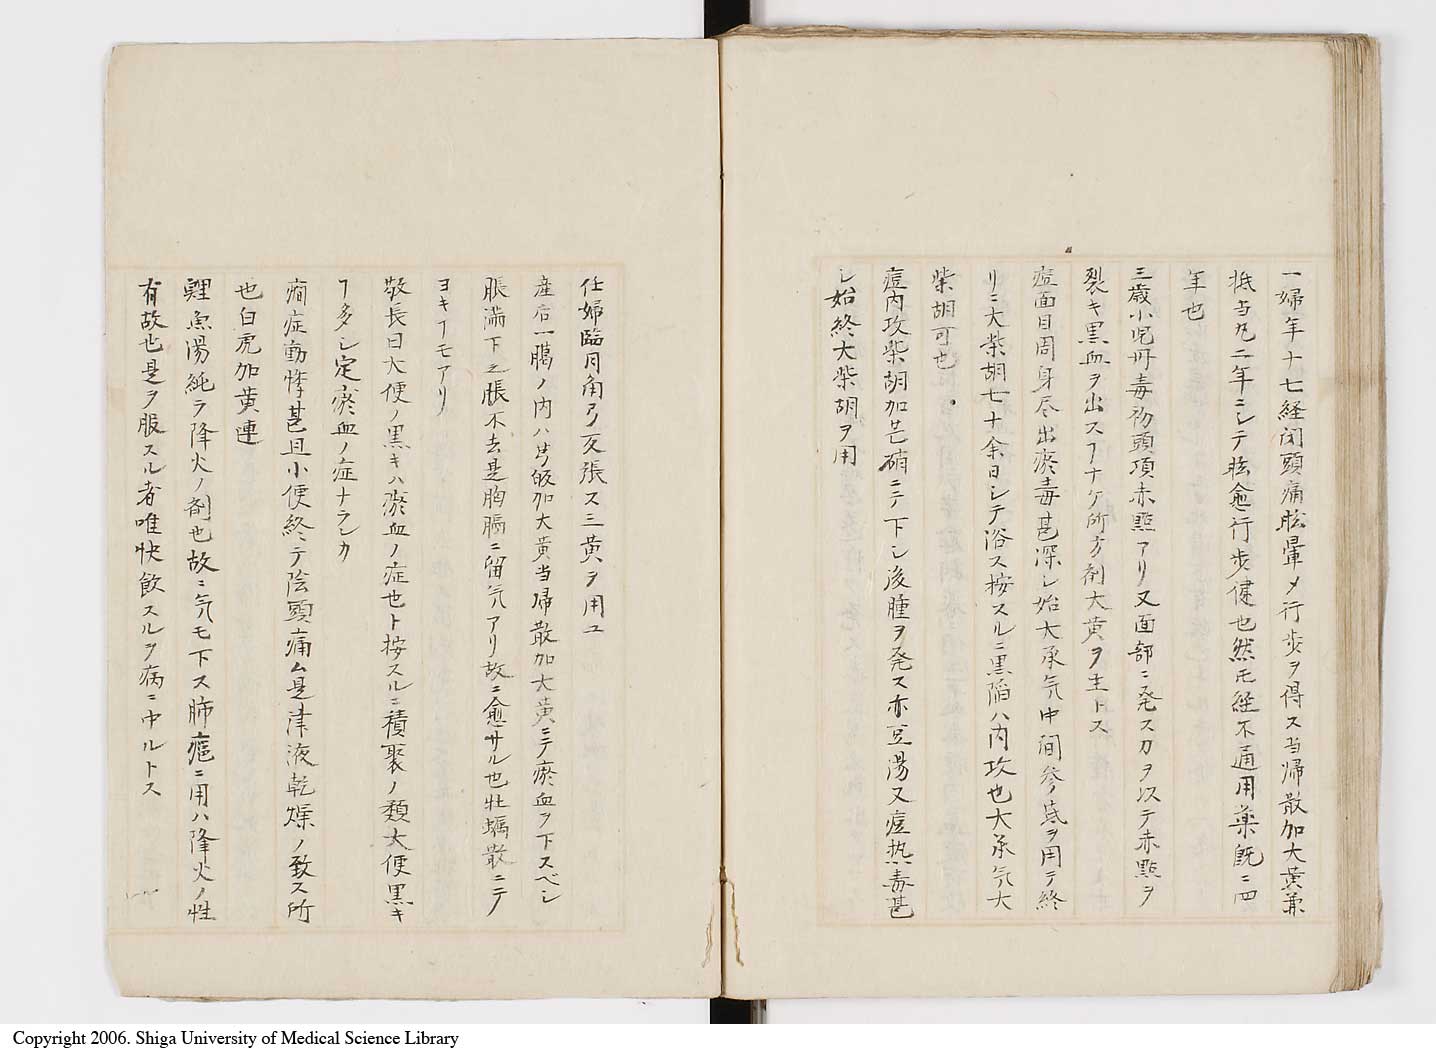 一婦年十七経閉頭痛眩暈〆行歩ヲ得ス当帰散加大黄兼
抵当丸二年ニシテ眩愈行歩健也然モ経不通用薬既ニ四
年也
三歳小児丹毒初頭項赤點アリ又面部ニ発ス刀ヲ以テ赤點ヲ
裂キ黒血ヲ出スヿナケ所方剤大黄ヲ主トス
痘面目周身尽出瘀毒甚深シ始大承気中間参茋ヲ用テ終
リニ大柴胡七十余日シテ浴ス按スルニ黒陥ハ内攻也大承気大
柴胡可也
痘内攻柴胡加芒硝ニテ下シ後腫ヲ発ス赤豆湯又痘热毒甚
シ始終大柴胡ヲ用
任婦臨月角弓反張ス三黄ヲ用ユ
産后一臈ノ内ハ芎帰加大黄当帰散加大黄ニテ瘀血ヲ下スベシ
脹満下之脹不去是胸膈ニ留気アリ故ニ愈サル也牡蠣散ニテ
ヨキヿモアリ
敬長曰大便ノ黒キハ瘀血ノ症也ト按スルニ積聚ノ類大便黒キ
ヿ多シ定瘀血ノ症ナランカ
癇症動悸甚且小便終テ陰頭痛ム是津液乾燥ノ致ス所
也白虎加黄連
鯉魚湯純ラ降火ノ剤也故ニ気モ下ス肺癰ニ用ハ降火ノ性
有故也是ヲ服スル者唯快飲スルヲ病ニ中ルトス
Copyright 2006. Shiga University of Medical Science Library